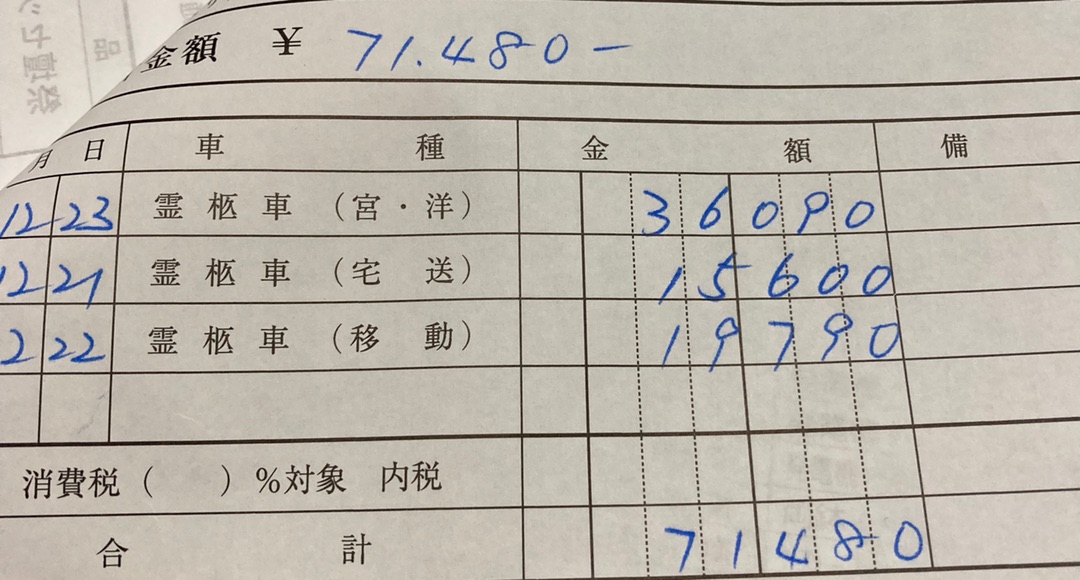 金額 ¥ 71.480-
月 日 車種 金額 備
12 23 霊柩車(宮・洋) 36090
12 21 霊柩車(宅送) 15600
2 22 霊柩車(移動) 19790
消費税( )%対象 内税
合計 71480